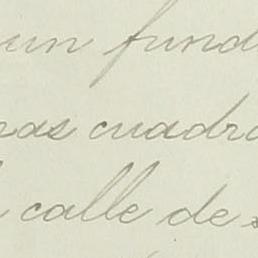 un fund
ras cuadra
calle de